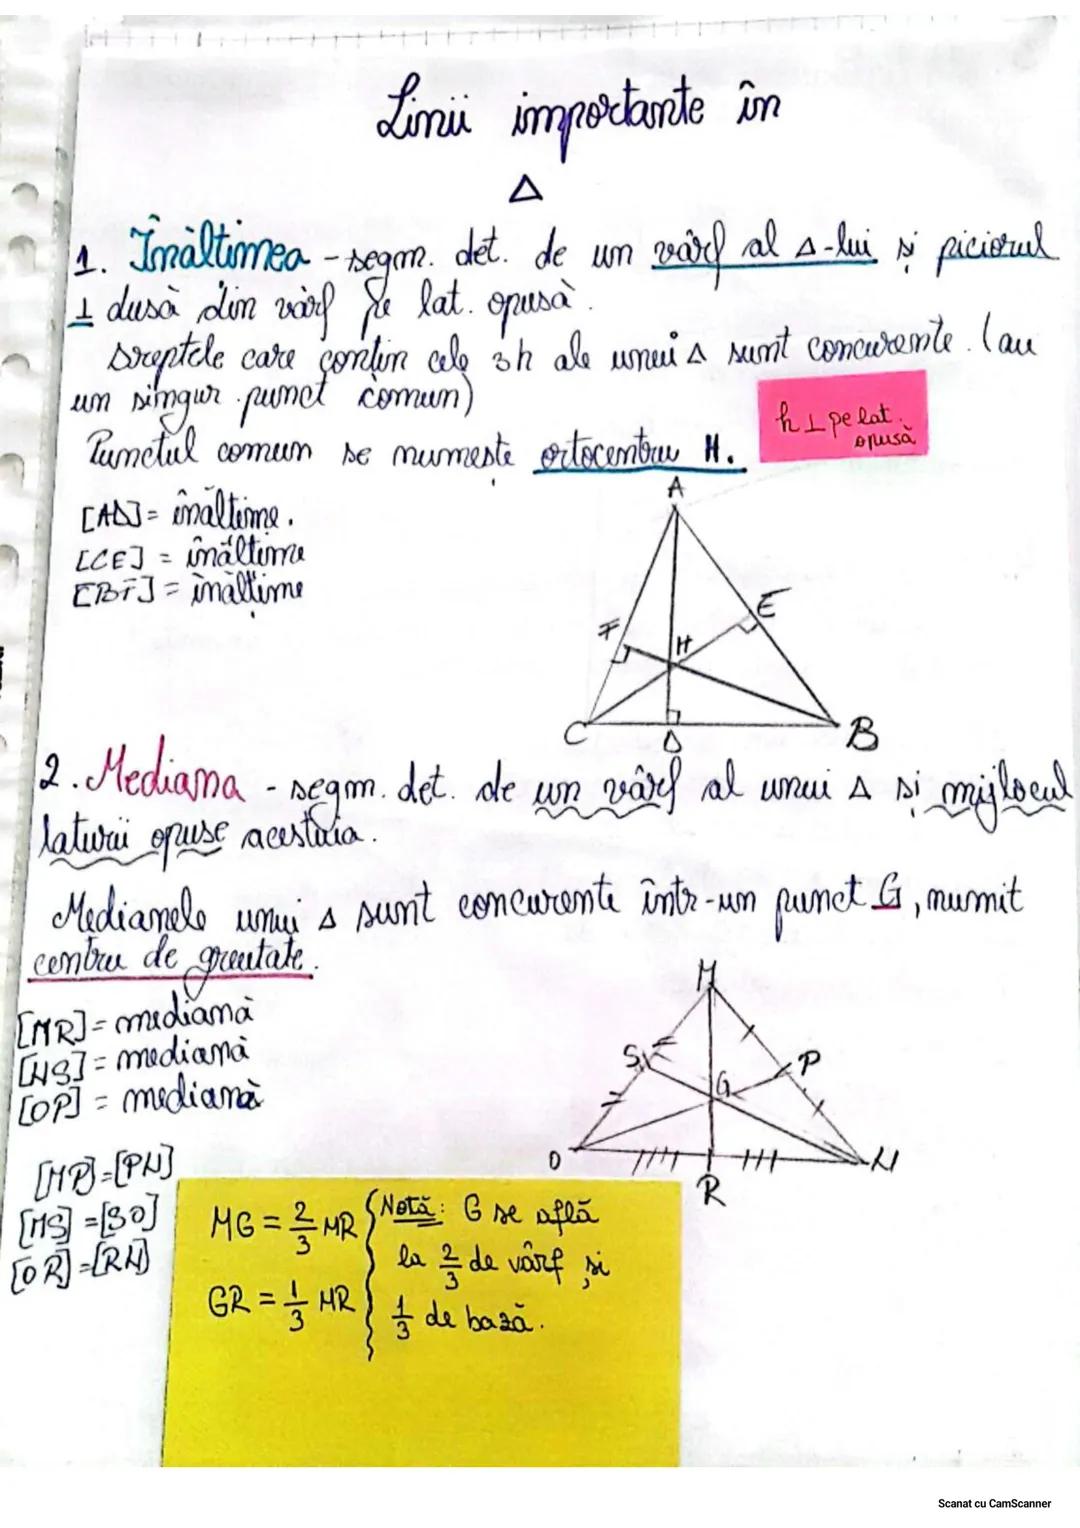 Linii importante în
Δ
1. Înălțimea - segm. det. de un vârf al Δ-lui și piciorul
⊥ dusă din vârf pe lat. opusă.
Dreptele care conțin cele 3h ale unui Δ sunt concurente. (au
un singur punct comun)
h ⊥ pe lat.
opusă
Punctul comun se numește ortocentru H.
[AD] = înălțime.
[CE] = înălțime
[BF] = înălțime
A
E
F
H
C
D
B
2. Mediana - segm. det. de un vârf al unui Δ și mijlocul
laturii opuse acestuia.
Medianele unui Δ sunt concurente într-un punct G, numit
centru de greutate.
[MR] = mediană
[NS] = mediană
[OP] = mediană
M
S
P
G
O
N
R
[MP]=[PN]
[MS]=[SO]
[OR]=[RN]
MG = 2/3 MR
GR = 1/3 MR
Notă: G se află
la 2/3 de vârf și
1/3 de bază.
Scanat cu CamScanner